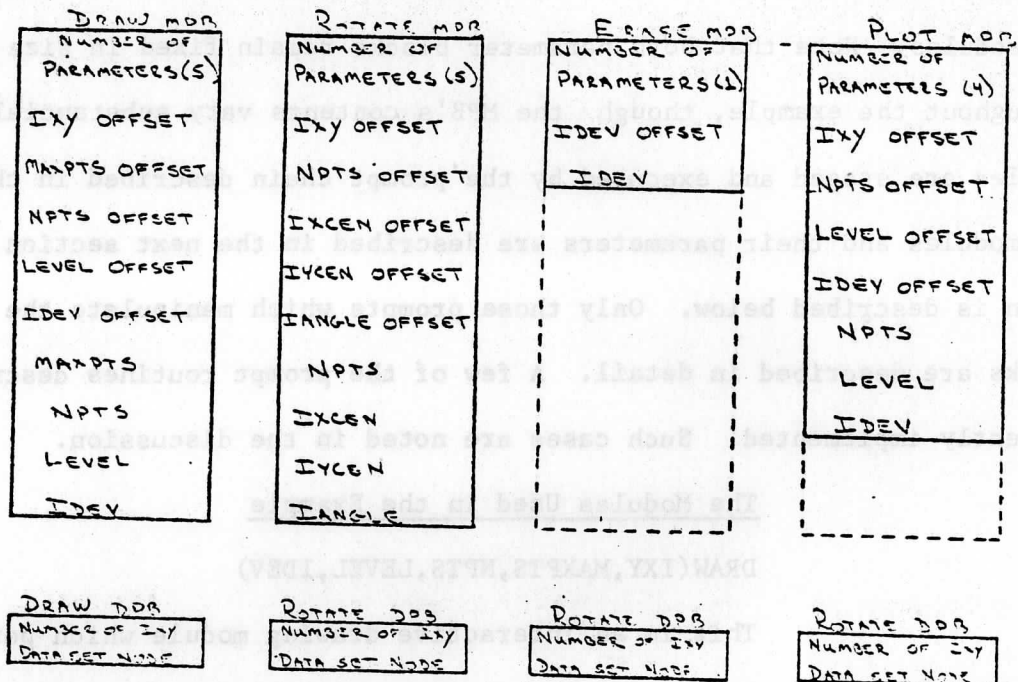 DRAW MDR
NUMBER OF
PARAMETERS(5)
IXY OFFSET
MAXPTS OFFSET
NPTS OFFSET
LEVEL OFFSET
IDEV OFFSET
MAXPTS
NPTS
LEVEL
IDEV
ROTATE MDR
NUMBER OF
PARAMETERS (5)
IXY OFFSET
NPTS OFFSET
IXCEN OFFSET
IYCEN OFFSET
IANGLE OFFSET
NPTS
IXCEN
IYCEN
IANGLE
ERASE MDR
NUMBER OF
PARAMETERS(1)
IDEV OFFSET
IDEV
PLOT MDR
NUMBER OF
PARAMETERS (4)
IXY OFFSET
NPTS OFFSET
LEVEL OFFSET
IDEV OFFSET
NPTS
LEVEL
IDEV
DRAW DDR
NUMBER OF IXY
DATA SET NODE
ROTATE DDR
NUMBER OF IXY
DATA SET NODE
ROTATE DDR
NUMBER OF IXY
DATA SET NODE
ROTATE DDR
NUMBER OF IXY
DATA SET NODE
The Modules Used in the Example
DRAW(IXY,MAXPTS,NPTS,LEVEL,IDEV)